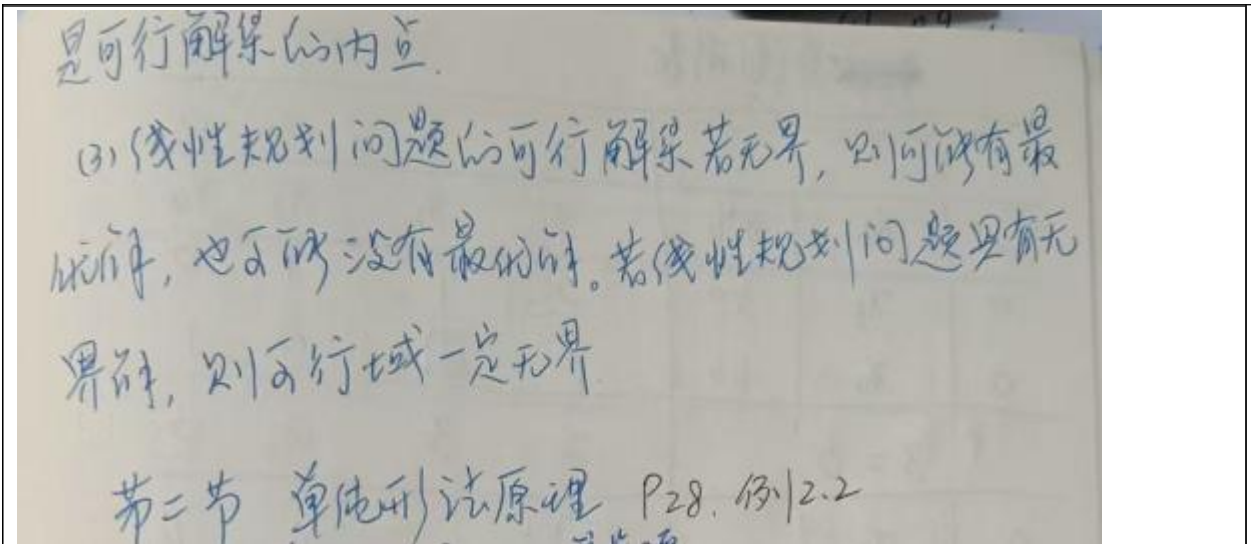 是可行解集的内点.
(3) 线性规划问题的可行解集若无界, 则可能有最
优解, 也可能没有最优解。若线性规划问题具有无
界解, 则可行域一定无界.
第二节 单纯形法原理 P28. 例2.2